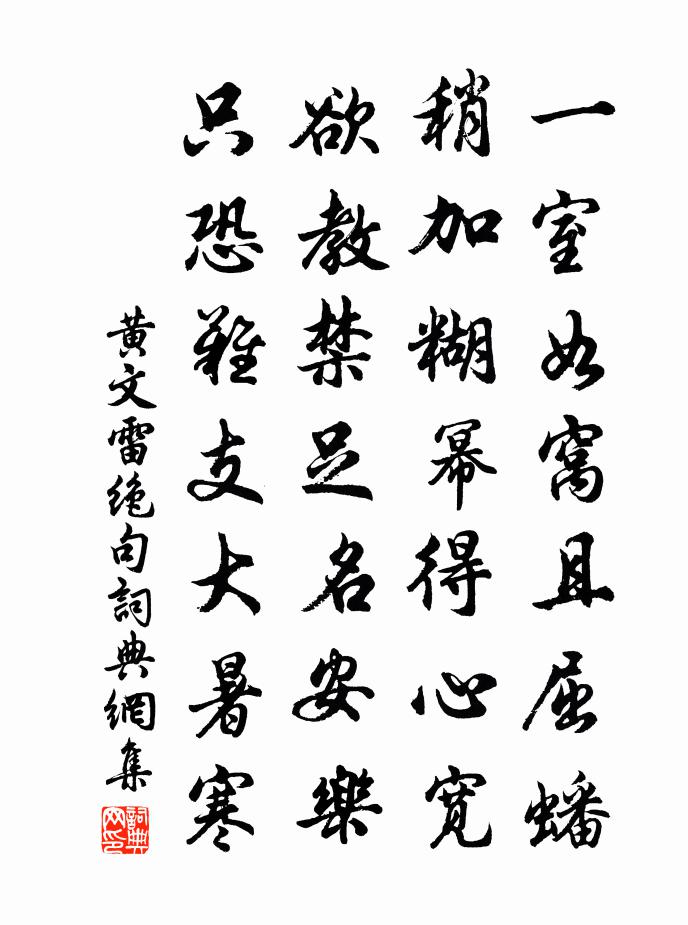 一室如窩且屈蟠
稍加糊幂得心寬
欲教禁足名安樂
只恐難支大暑寒
黃文雷絕句詞典網集
詞典網印